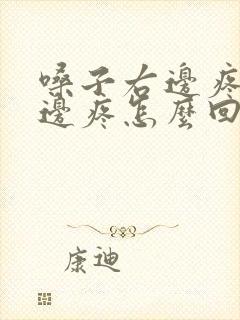 嗓子右邊疼
邊疼怎麼回
康迪